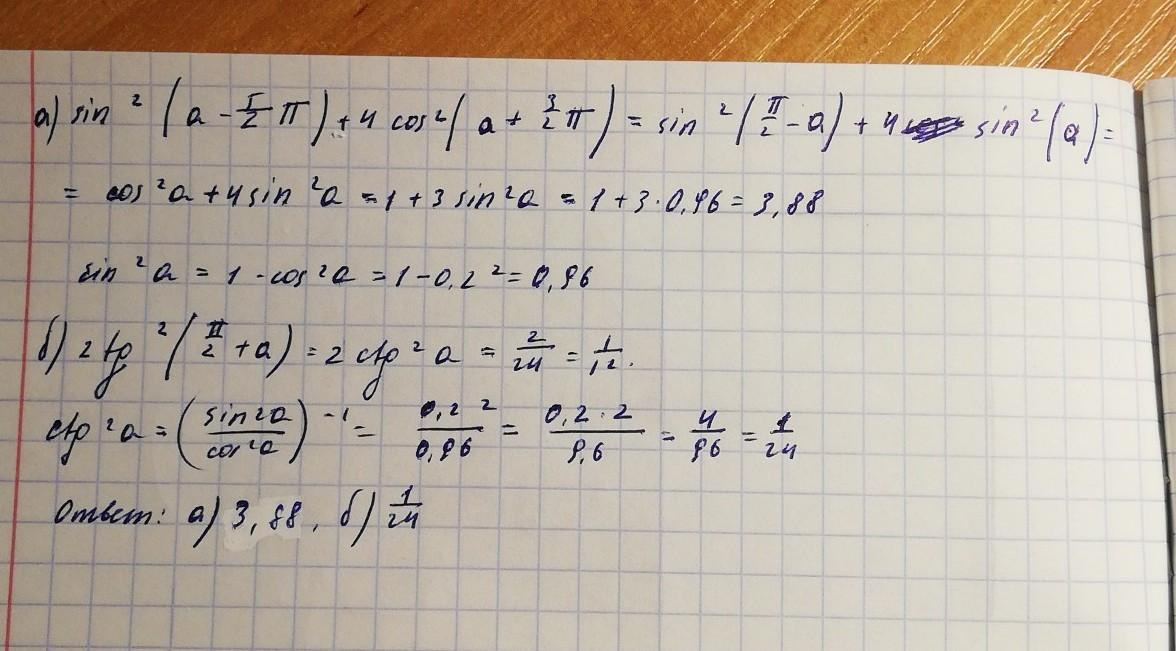 а) sin² (a - 5/2 π) + 4 cos² (a + 3/2 π) = sin² (π/2 - a) + 4 sin² (a) =
= cos²a + 4 sin²a = 1 + 3 sin²a = 1 + 3 · 0,96 = 3,88
sin²a = 1 - cos²a = 1 - 0,2² = 0,96
б) 2 tg² (π/2 + a) = 2 ctg² a = 2/24 = 1/12.
ctg²a = (sin²a/cos²a)⁻¹ = 0,2²/0,96 = 0,2·2/9,6 = 4/96 = 1/24
Ответ: а) 3,88, б) 1/24